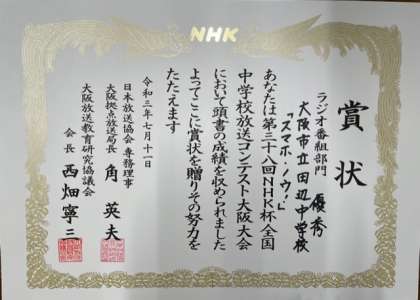 NHK
賞状
ラジオ番組部門 優秀
大阪市立田辺中学校
「スマホ・ノウ!」
あなたは第三十八回NHK杯全国
中学校放送コンテスト大阪大会
において頭書の成績を収められました
よってここに賞状を贈りその努力を
たたえます
令和三年七月十一日
日本放送協会 専務理事
大阪拠点放送局長 角 英夫
大阪放送教育研究協議会
会長 西畑寧三